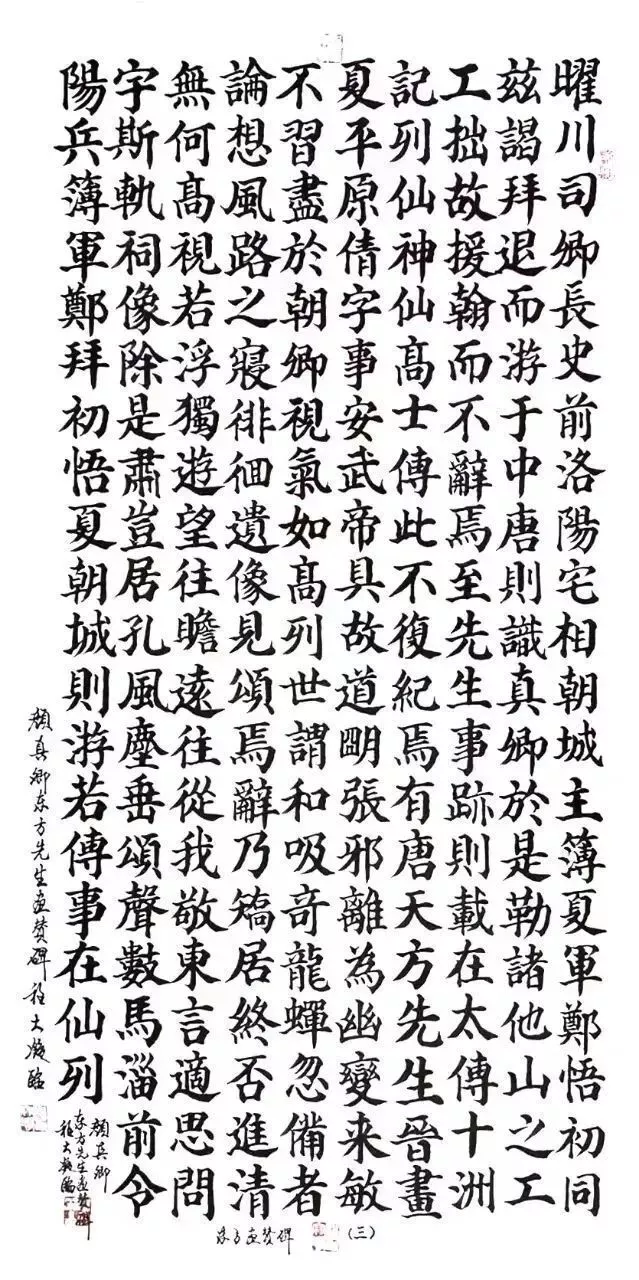 曜川司卿長史前洛陽宅相朝城主簿夏軍鄭悟初同
兹謁拜退而游于中唐則識真卿於是勒諸他山之工
工拙故援翰而不辭焉至先生事跡則載在太傳十洲
記列仙神仙高士傳此不復紀焉有唐天方先生晉畫
夏平原倩字事安武帝具故道明張邪離為幽變来敏
不習盡於朝卿視氣如高列世謂和吸奇龍蟬忽備者
論想風路之寢徘徊遺像見頌焉辭乃居終否進清
無何高視若浮獨遊望往瞻遠往從我敬東言適思問
宇斯軌祠像除是肅豈居孔風塵垂頌聲數馬淄前令
陽兵簿軍鄭拜初悟夏朝城則游若傳事在仙列
顏真卿
东方先生画赞碑
程大凝临
顏真卿东方先生画赞碑 程大凝临
东方画赞碑 (三)